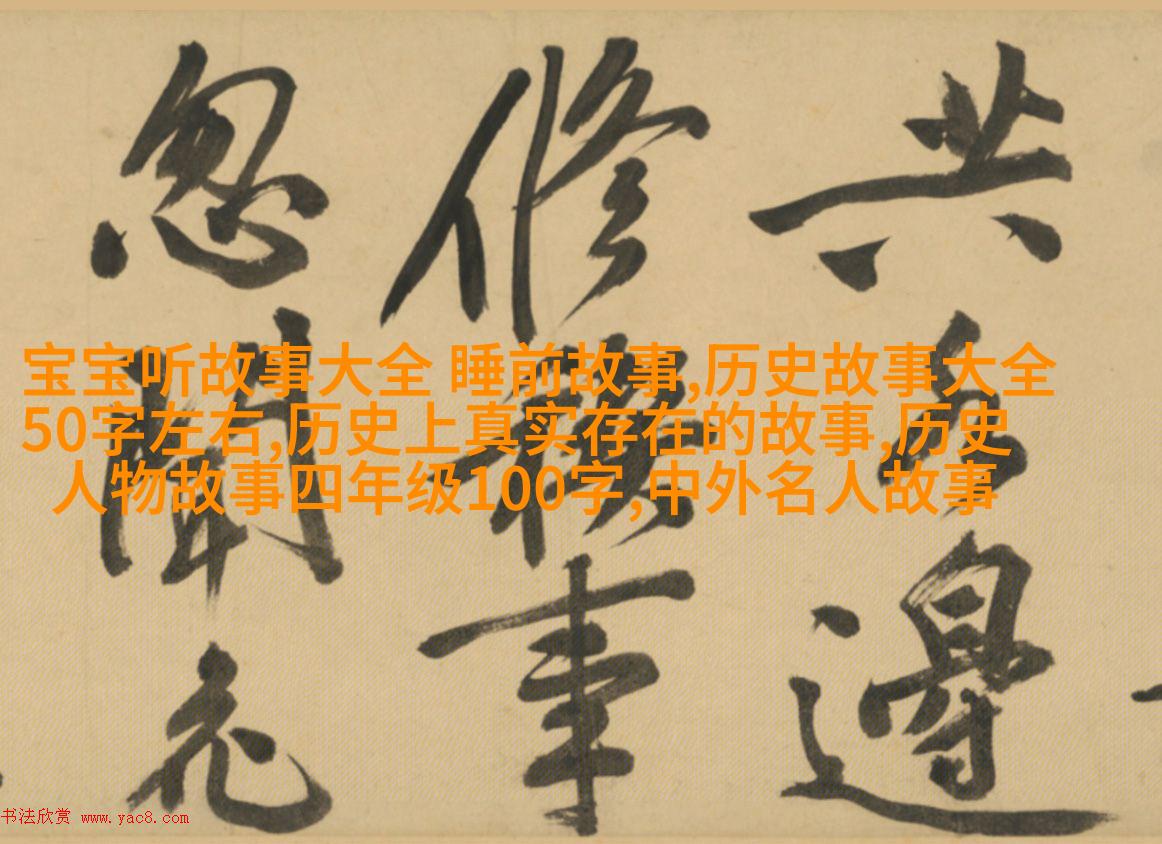 共邊
修禊事
忽聞
宝宝听故事大全 睡前故事,历史故事大全
50字左右,历史上真实存在的故事,历史
人物故事四年级100字,中外名人故事
书法欣赏 www.yac8.com